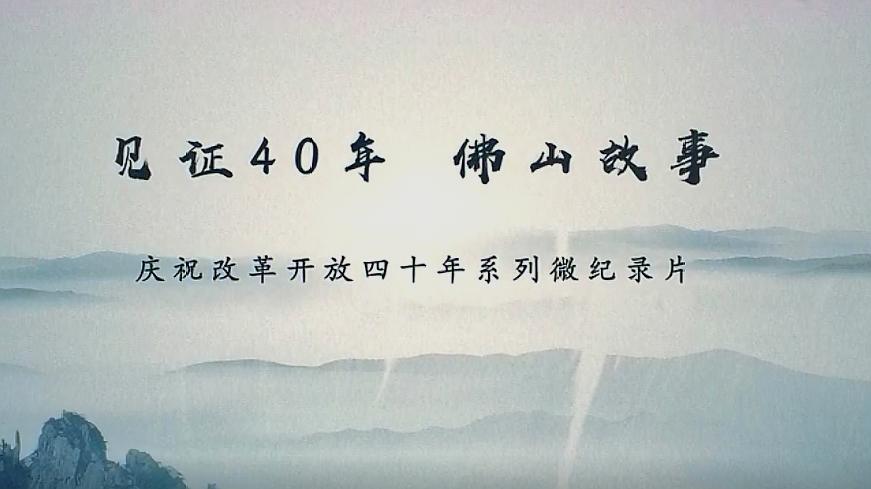 见证40年 佛山故事
庆祝改革开放四十年系列微纪录片